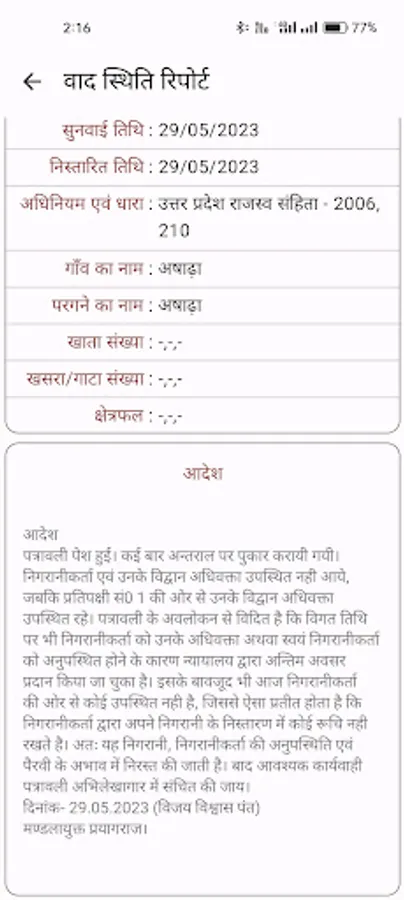 2:16
77%
← वाद स्थिति रिपोर्ट
सुनवाई तिथि : 29/05/2023
निस्तारित तिथि : 29/05/2023
अधिनियम एवं धारा : उत्तर प्रदेश राजस्व संहिता - 2006,
210
गाँव का नाम : अषाढ़ा
परगने का नाम : अषाढ़ा
खाता संख्या : -,-,-
खसरा/गाटा संख्या : -,-,-
क्षेत्रफल : -,-,-
आदेश
आदेश
पत्रावली पेश हुई। कई बार अन्तराल पर पुकार करायी गयी।
निगरानीकर्ता एवं उनके विद्वान अधिवक्ता उपस्थित नही आये,
जबकि प्रतिपक्षी सं0 1 की ओर से उनके विद्वान अधिवक्ता
उपस्थित रहे। पत्रावली के अवलोकन से विदित है कि विगत तिथि
पर भी निगरानीकर्ता को उनके अधिवक्ता अथवा स्वयं निगरानीकर्ता
को अनुपस्थित होने के कारण न्यायालय द्वारा अन्तिम अवसर
प्रदान किया जा चुका है। इसके बावजूद भी आज निगरानीकर्ता
की ओर से कोई उपस्थित नही है, जिससे ऐसा प्रतीत होता है कि
निगरानीकर्ता द्वारा अपने निगरानी के निस्तारण में कोई रूचि नही
रखते है। अतः यह निगरानी, निगरानीकर्ता की अनुपस्थिति एवं
पैरवी के अभाव में निरस्त की जाती है। बाद आवश्यक कार्यवाही
पत्रावली अभिलेखागार में संचित की जाय।
दिनांक- 29.05.2023 (विजय विश्वास पंत)
मण्डलायुक्त प्रयागराज।